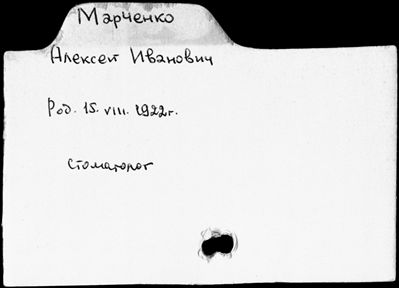 Марченко
Алексей Иванович
Род. 15. VIII. 1922г.
Стоматолог